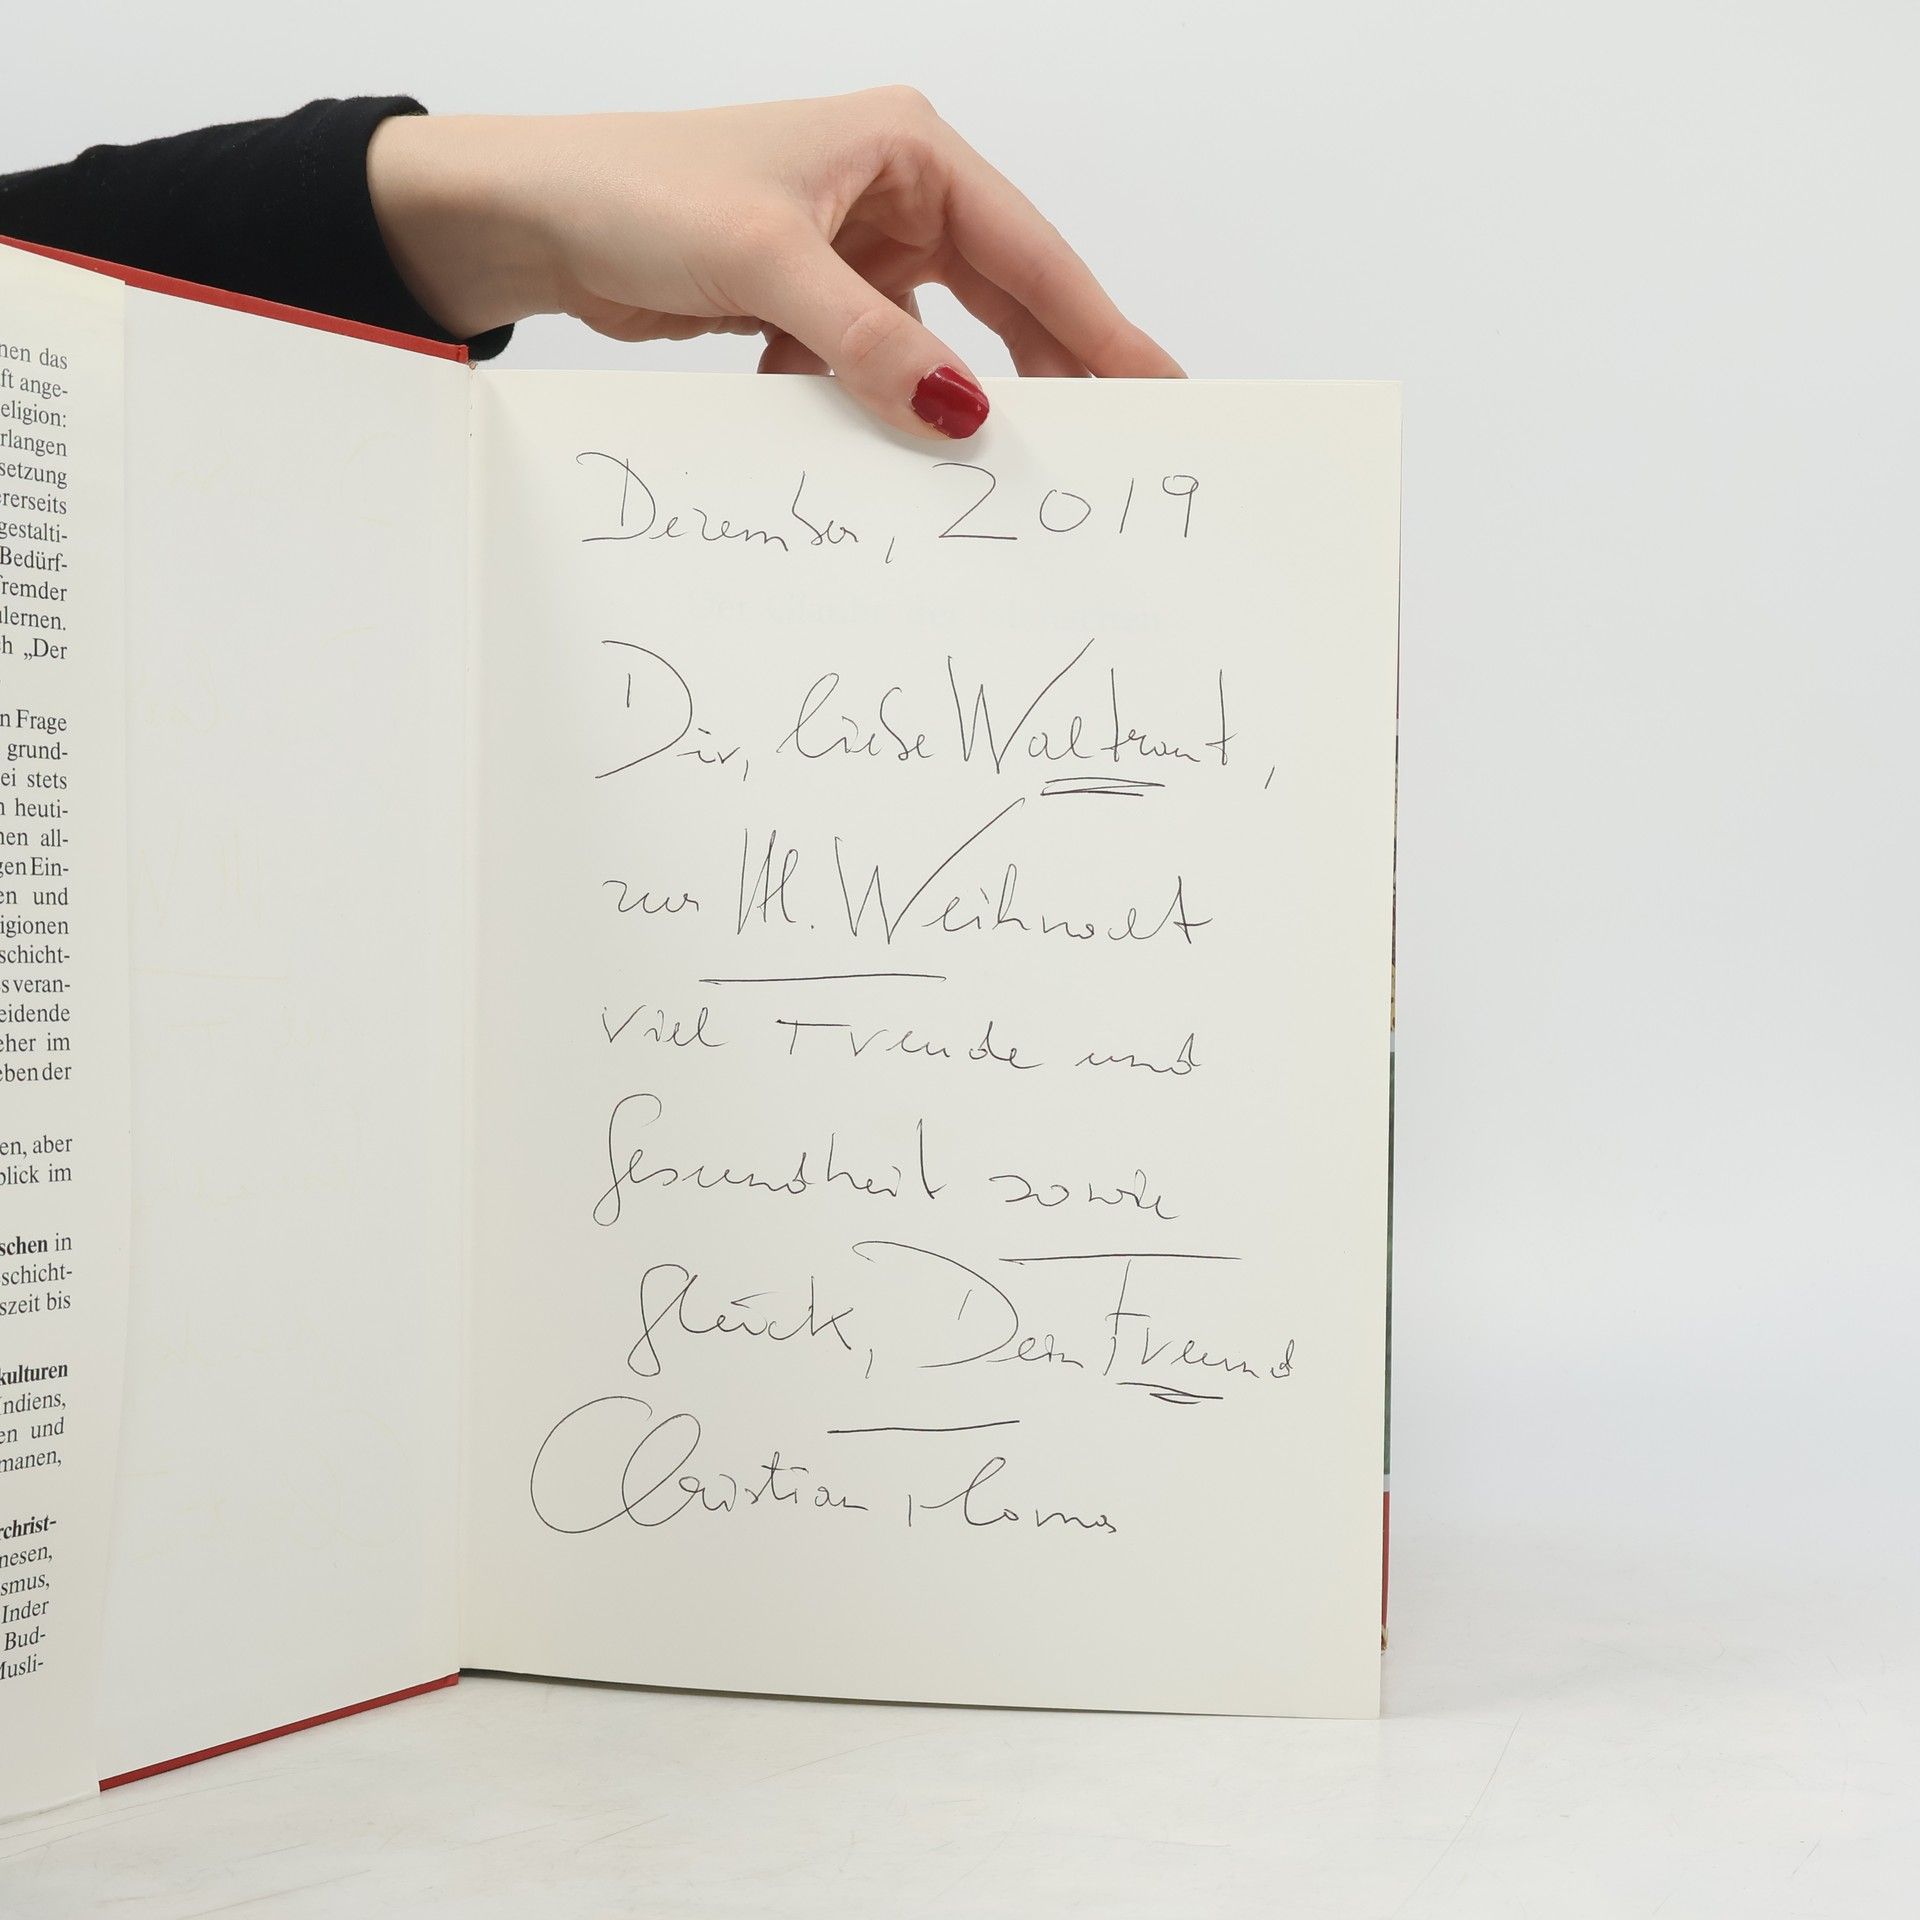 nen das
ft ange-
eligion:
rlangen
setzung
ererseits
gestalti-
Bedürf-
remder
lernen.
ch „Der
n Frage
grund-
ei stets
n heuti-
nen all-
gen Ein-
en und
igionen
schicht-
s veran-
eidende
eher im
eben der
en, aber
blick im
schen in
schicht-
szeit bis
kulturen
Indiens,
en und
manen,
rchrist-
nesen,
smus,
Inder
Bud-
Musli-
Dezember, 2019
Dir, liebe Waltraut,
zur Hl. Weihnacht
viel Freude und
Gesundheit sowie
Glück, Dein Freund
Christian